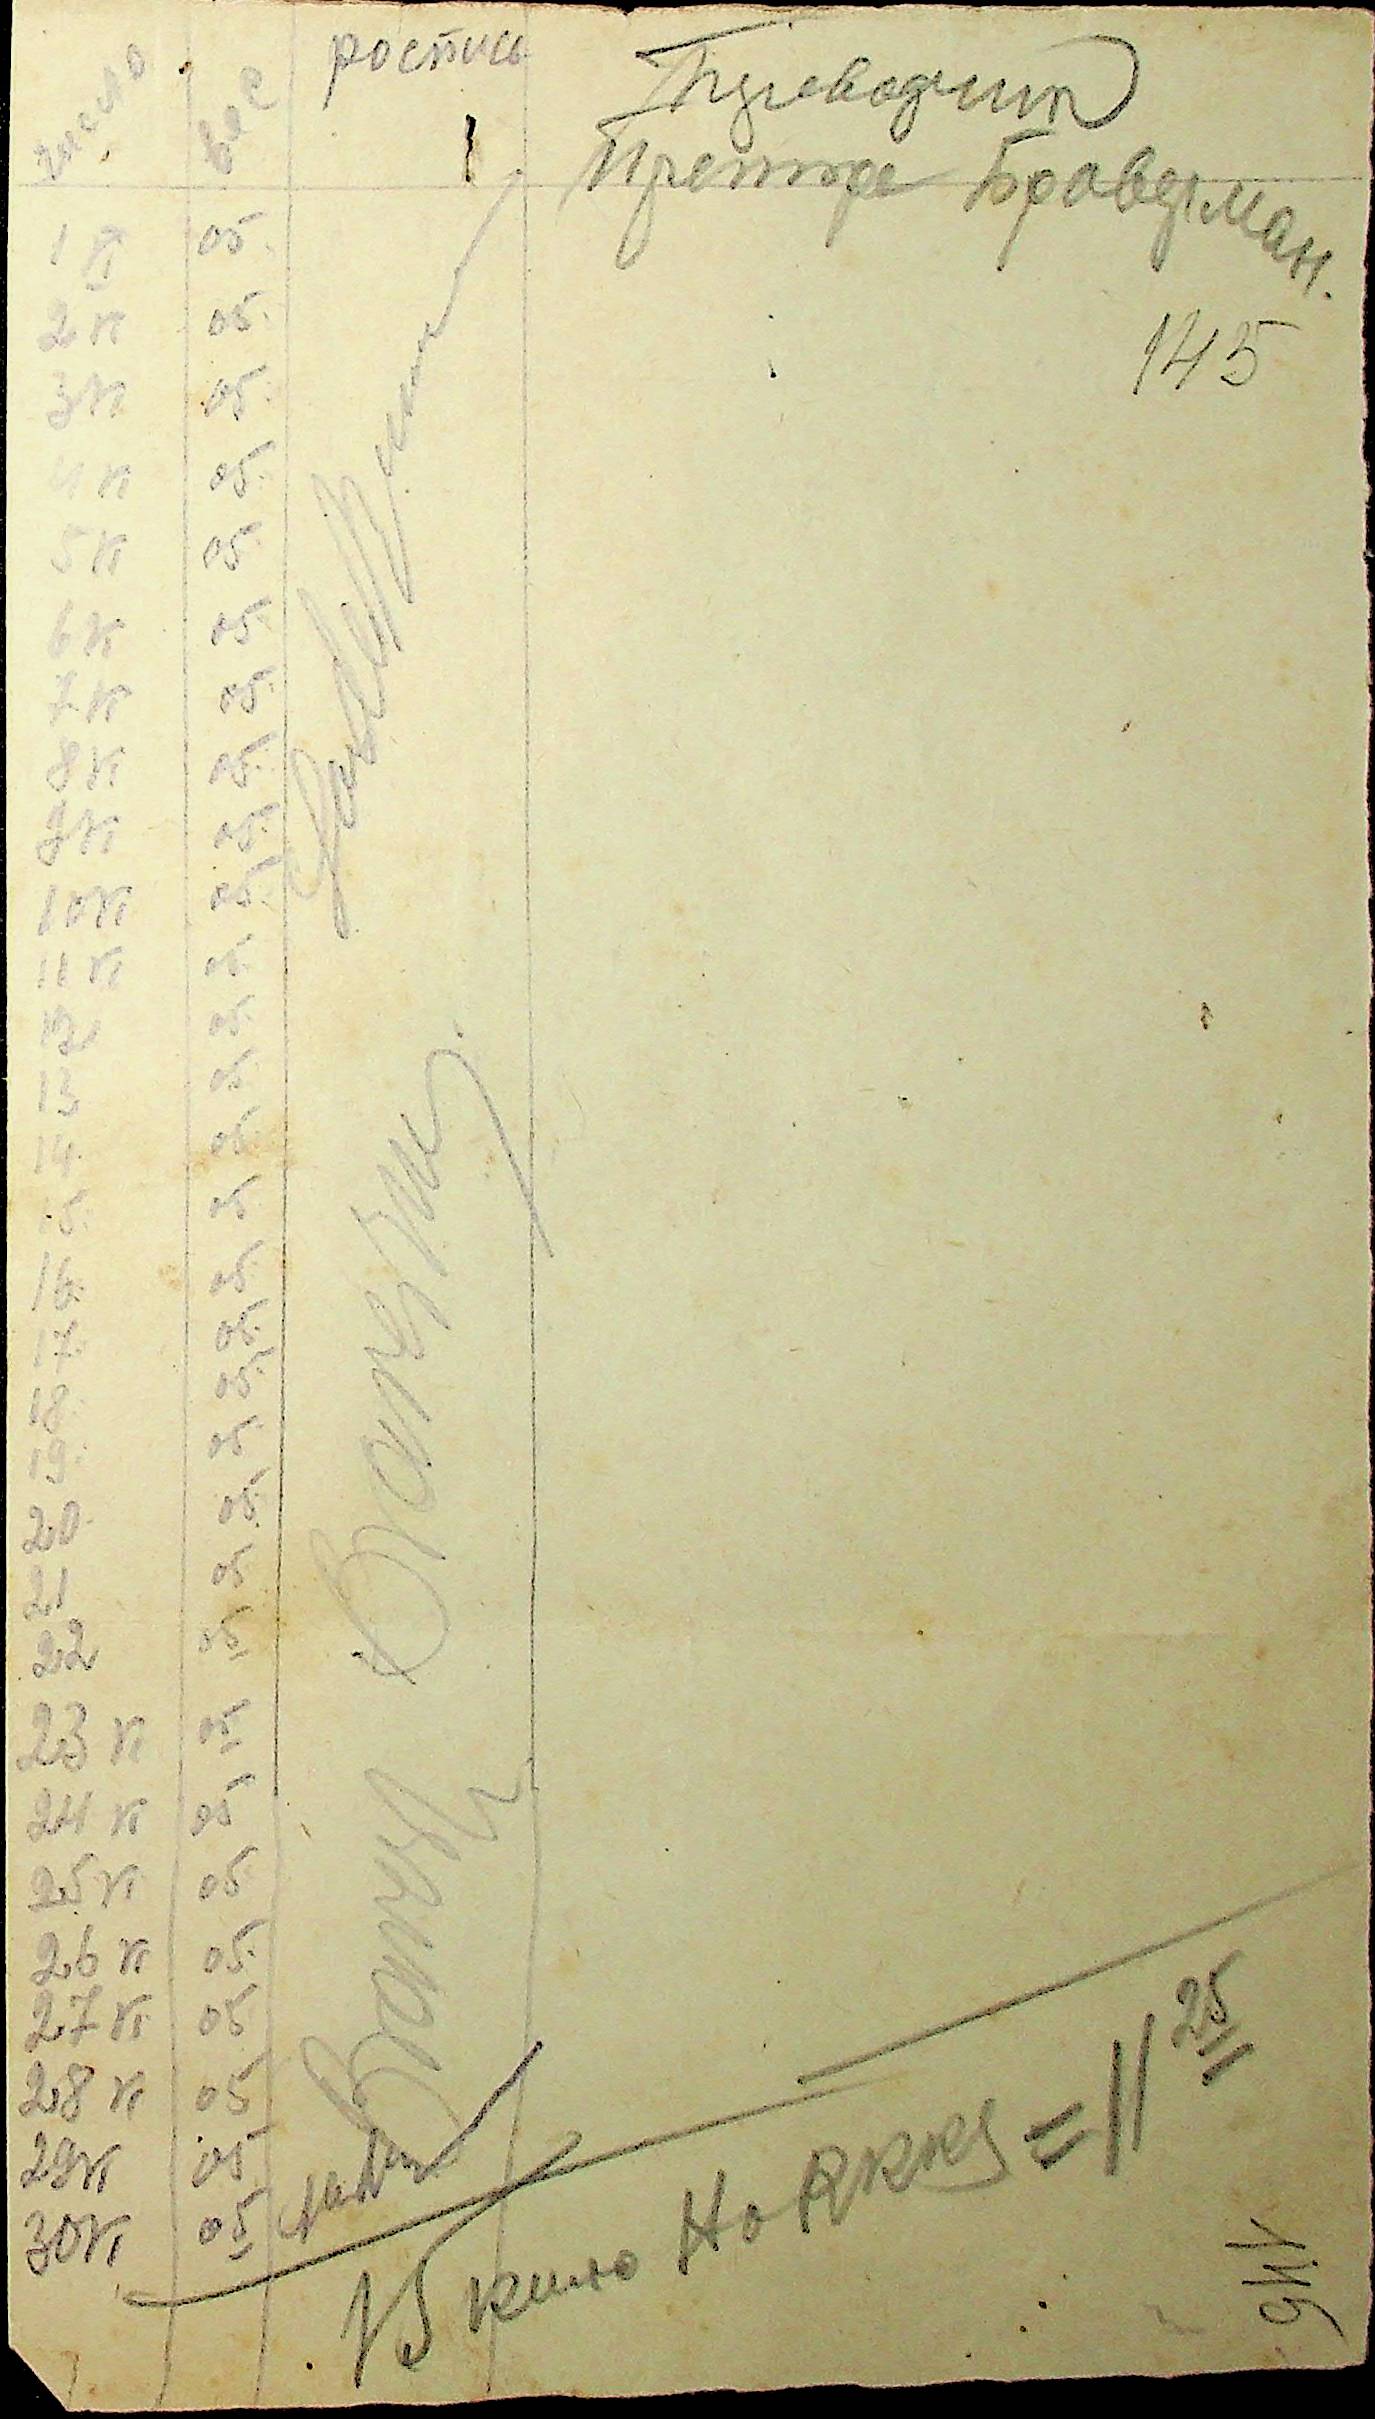 число вес роспись
Переводчик
Претор Бравдман.
145
1 VI 05.
2 VI 05.
3 VI 05.
4 VI 05.
5 VI 05.
6 VI 05.
7 VI 05.
8 VI 05.
9 VI 05.
10 VI 05.
11 VI 05.
12 05.
13 05.
14. 05.
15. 05.
16. 05.
17. 05.
18. 05.
19. 05.
20. 05.
21 05
22 05
23 VI 05
24 VI 05
25 VI 05
26 VI 05.
27 VI 05
28 VI 05
29 VI 05
30 VI 05
15 кило = 11 25
146